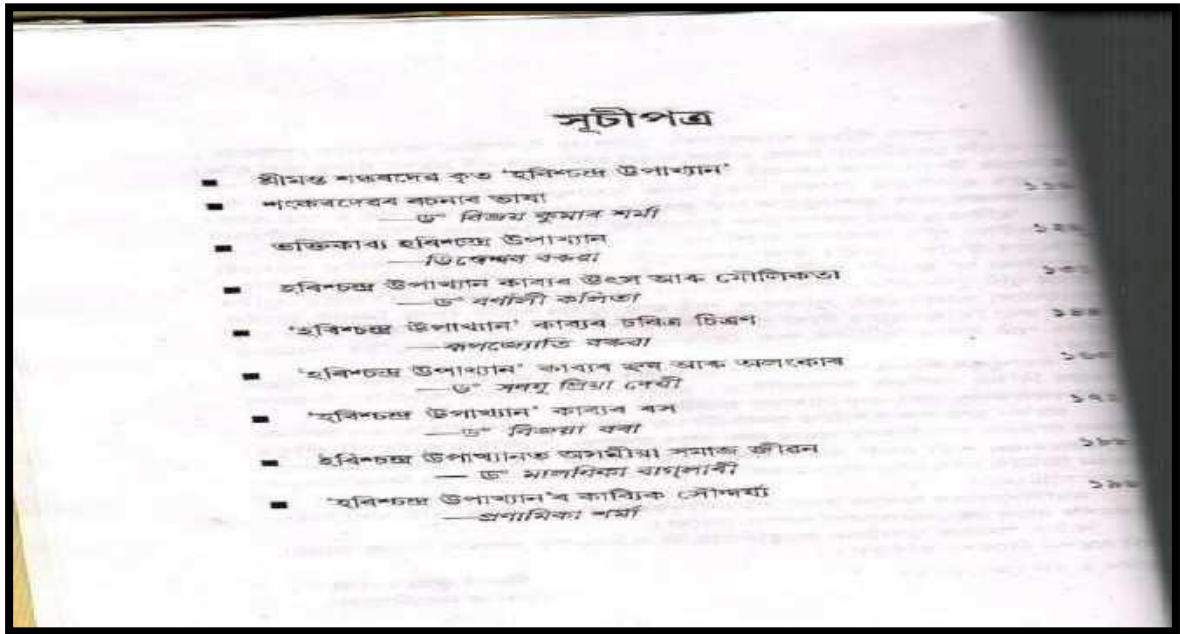 সূচীপত্ৰ
■ শ্ৰীমন্ত শঙ্কৰদেৱ কৃত ‘হৰিশ্চন্দ্ৰ উপাখ্যান’
■ শংকৰদেৱৰ ৰচনাৰ ভাষা
—ড° বিজয় কুমাৰ শৰ্মা
■ ভক্তিকাব্য হৰিশ্চন্দ্ৰ উপাখ্যান
—ডিম্বেশ্বৰ বৰুৱা
■ হৰিশ্চন্দ্ৰ উপাখ্যান কাব্যৰ উৎস আৰু মৌলিকতা
—ড° বৰ্ণালী কলিতা
■ ‘হৰিশ্চন্দ্ৰ উপাখ্যান’ কাব্যৰ চৰিত্ৰ চিত্ৰণ
—ৰূপজ্যোতি বৰুৱা
■ ‘হৰিশ্চন্দ্ৰ উপাখ্যান’ কাব্যৰ ছন্দ আৰু অলংকাৰ
—ড° প্ৰিয়া দেৱী
■ ‘হৰিশ্চন্দ্ৰ উপাখ্যান’ কাব্যৰ ৰস
—ড° বিজয়া বৰা
■ হৰিশ্চন্দ্ৰ উপাখ্যানত অসমীয়া সমাজ জীৱন
— ড° মালবিকা
■ ‘হৰিশ্চন্দ্ৰ উপাখ্যান’ৰ কাব্যিক সৌন্দৰ্য্য
—প্ৰণামিকা শৰ্মা